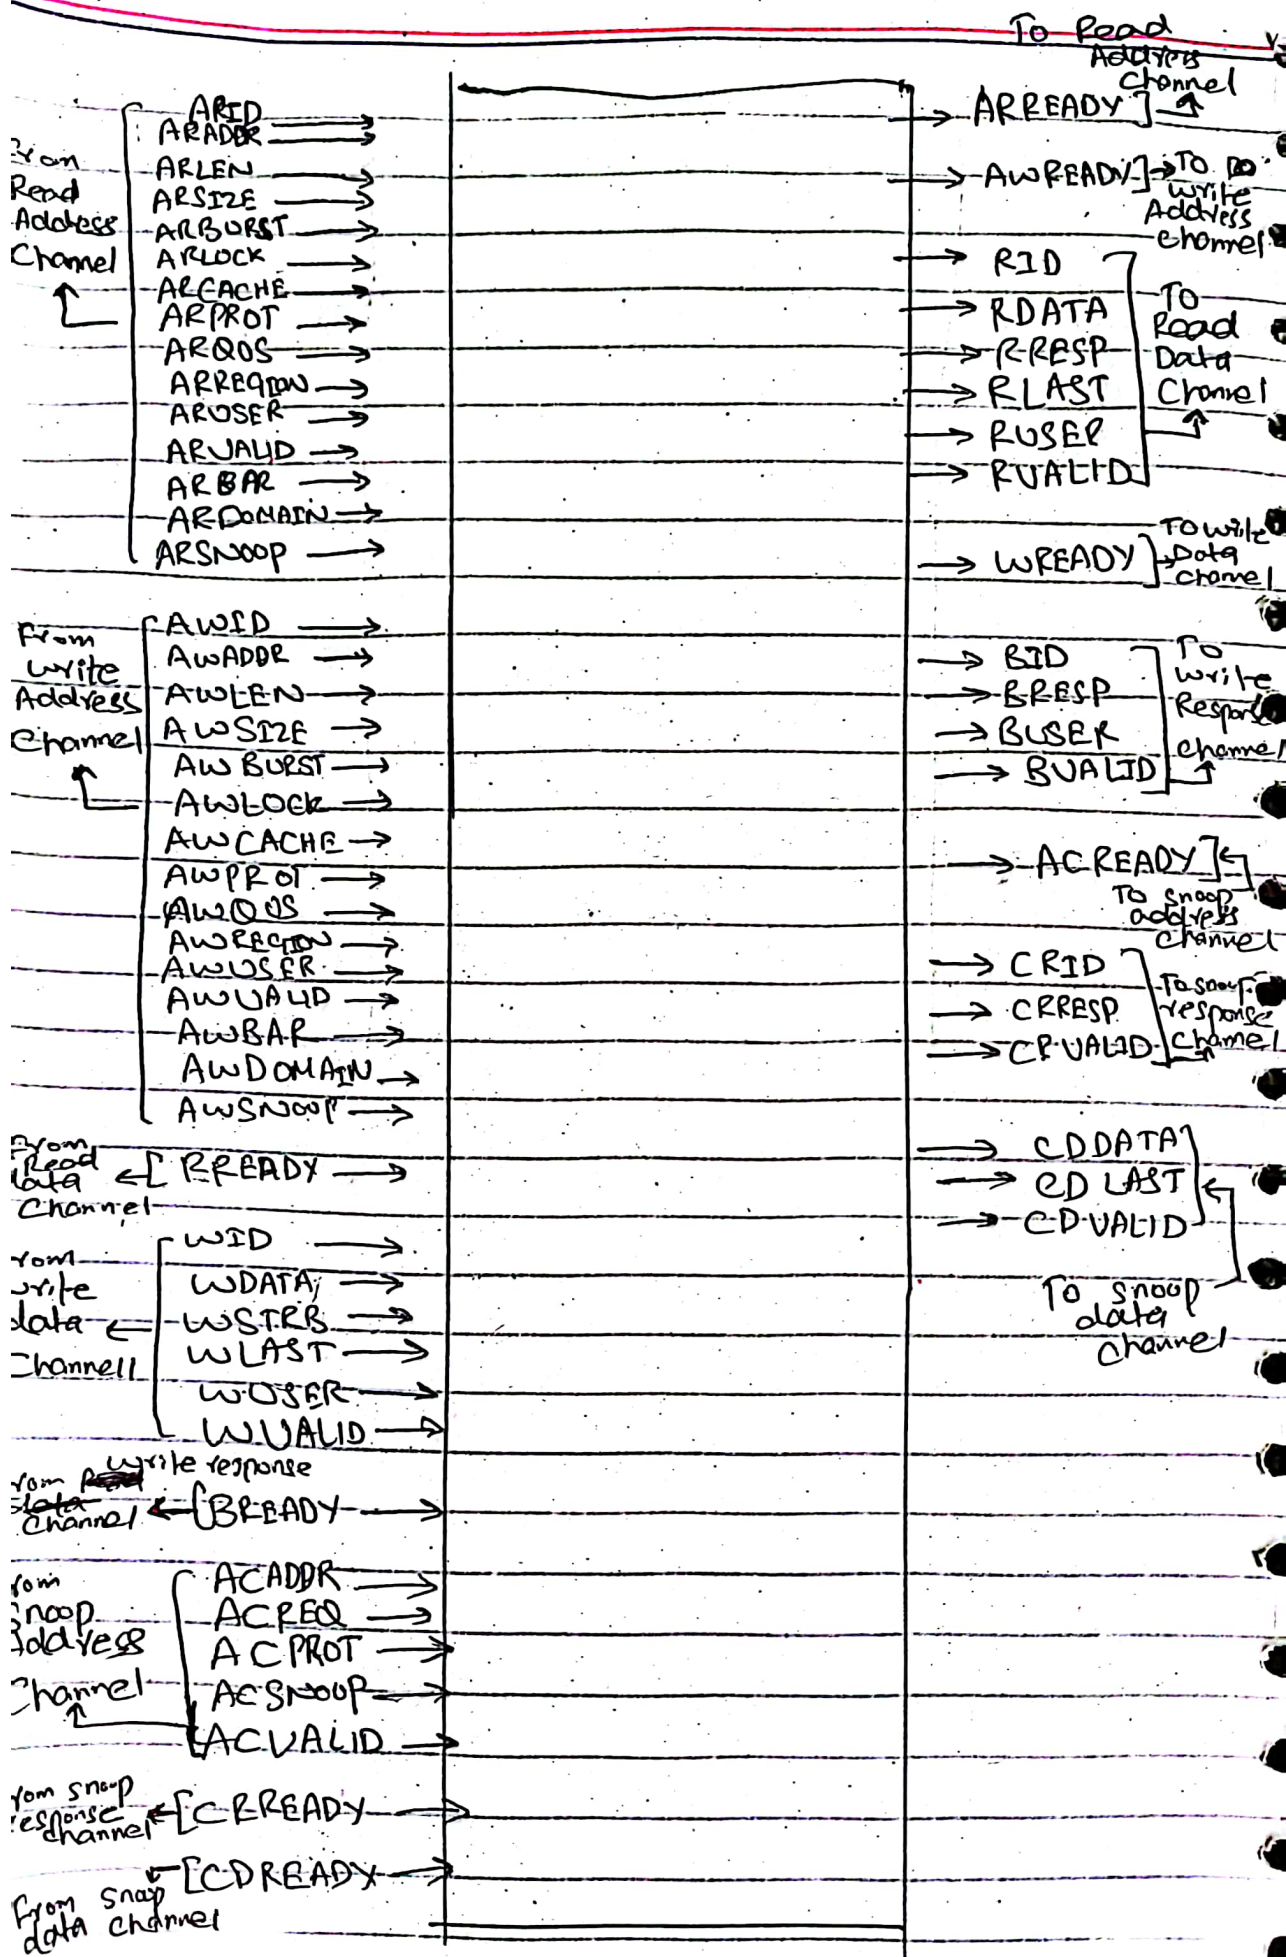 From
Read
Address
Channel
ARID
ARADDR
ARLEN
ARSIZE
ARBURST
ARLOCK
ARCACHE
ARPROT
ARQOS
ARREGION
ARUSER
ARVALID
ARBAR
ARDOMAIN
ARSNOOP
From
write
Address
Channel
AWID
AWADDR
AWLEN
AWSIZE
AWBURST
AWLOCK
AWCACHE
AWPROT
AWQOS
AWREGION
AWUSER
AWVALID
AWBAR
AWDOMAIN
AWSNOOP
From
Read
data
Channel
RREADY
rom
write
data
Channell
WID
WDATA
WSTRB
WLAST
WUSER
WVALID
write response
rom
channel
BREADY
rom
snoop
address
Channel
ACADDR
ACREQ
ACPROT
ACSNOOP
ACVALID
rom snoop
response
channel
CRREADY
CDREADY
From snoop
data channel
To Read
Address
Channel
ARREADY
AWREADY
To
write
Address
channel
RID
RDATA
RRESP
RLAST
RUSER
RVALID
To
Read
Data
Channel
WREADY
To write
Data
channel
BID
BRESP
BUSER
BVALID
To
write
Response
channel
ACREADY
To snoop
address
channel
CRID
CRRESP
CRVALID
To snoop
response
channel
CDDATA
CDLAST
CDVALID
To snoop
data
channel